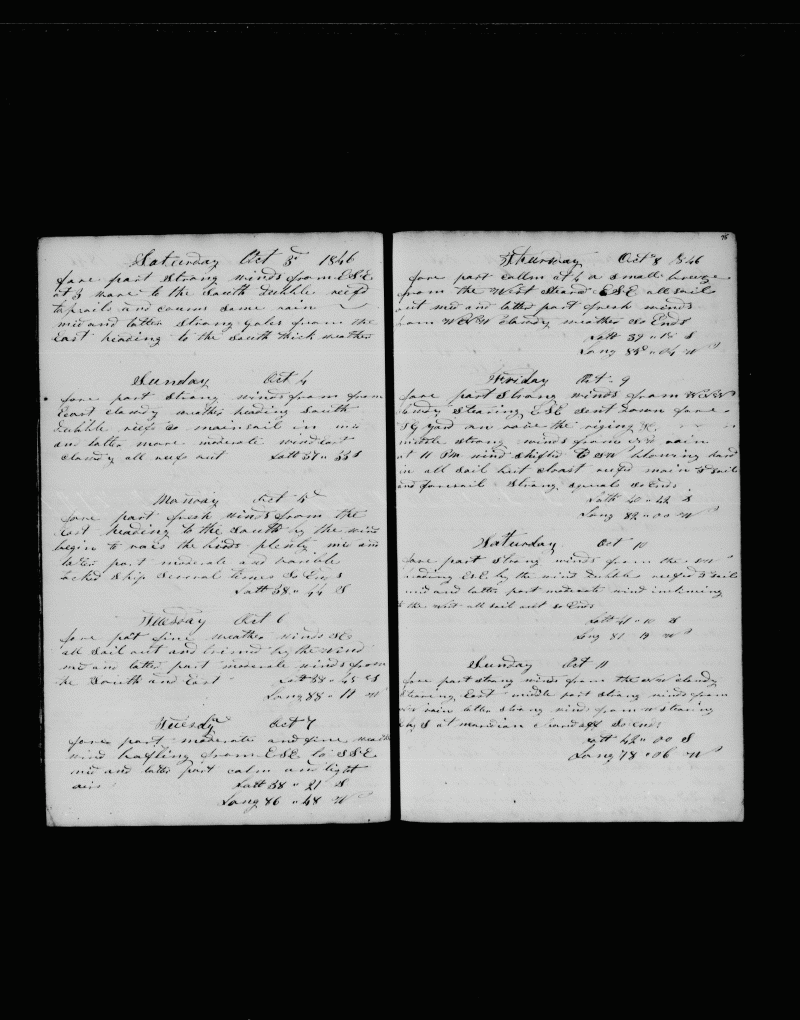 Saturday Oct 3d 1846
fore part Strong winds from ESE
at 3 ware to the South dubble reef'd
topsails and coarse some rain
mid and latter Strong gales from the
East heading to the South thick weather
Sunday Oct 4
fore part Strong winds from from
East clowdy weather heading South
dubble reefs mainsail in mid
and latter more moderate wind East
clowdy all reefs out Latt 37 " 33 S
Monday Oct 5
fore part fresh winds from the
East heading to the South by the wind
begin to rais the birds plenty mid and
latter part moderate and varible
tacked Ship Several times So Ends
Latt 38 " 44 S
Tuesday Oct 6
fore part fine weather winds SE
all Sail out and brimd by the wind
mid and latter part moderate winds from
the South and East Latt 38 " 45 S
Long 88 " 11 W
Tuesday Oct 7
fore part moderate and fine weather
wind bafling from ESE to SSE
mid and latter part calm and light
airs
Latt 38 " 21 S
Long 86 " 48 W
Thursday Oct 8 1846
fore part callm at 4 a small breeze
from the West Steard ESE all sail
out mid and latter part fresh winds
from WNW clowdy weather So Ends
Latt 39 " 18 S
Long 85 " 04 W
Friday Oct 9
fore part Strong winds from WNW
clowdy Stearing ESE Sent down fore
yard and rove the riging
middle strong winds from rain
at 11 PM wind shifted to SW blowing hard
in all Sail but cloast reefd main T Sail
and foresail Strong squals So Ends
Latt 40 " 42 S
Long 82 " 00 W
Satturday Oct 10
fore part Strong winds from the SW
heading ESE by the wind dubble reefed T Sails
mid and latter part moderate wind inclineing
to the West all sail out So Ends
Latt 41 " 10 S
Long 81 " 14 W
Sunday Oct 11
fore part strong winds from the NW clowdy
Stearing East middle part Strong winds from
rain latter strong winds from W stearing
E by S at meridian So Ends
Latt 42 " 00 S
Long 78 " 06 W